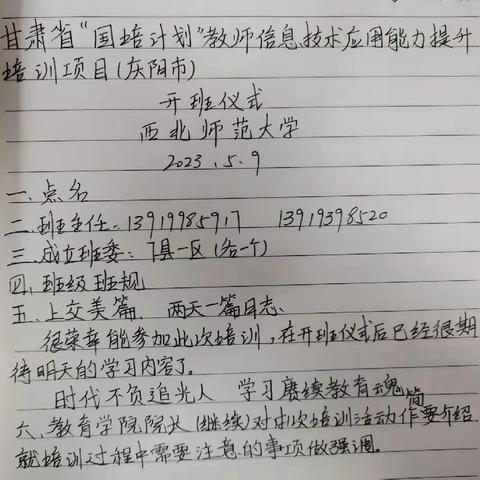 甘肃省“国培计划”教师信息技术应用能力提升
培训项目(庆阳市)
开班仪式
西北师范大学
2023.5.9
一、点名
二、班主任:13919985917 13919398520
三、成立班委:7县一区(各一个)
四、班级班规
五、上交美篇、两天一篇日志、
很荣幸能参加此次培训,在开班仪式后已经很期
待明天的学习内容了。
时代不负追光人 学习赓续教育魂
六、教育学院院长(继续)对本次培训活动作简要介绍
就培训过程中需要注意的事项做强调。